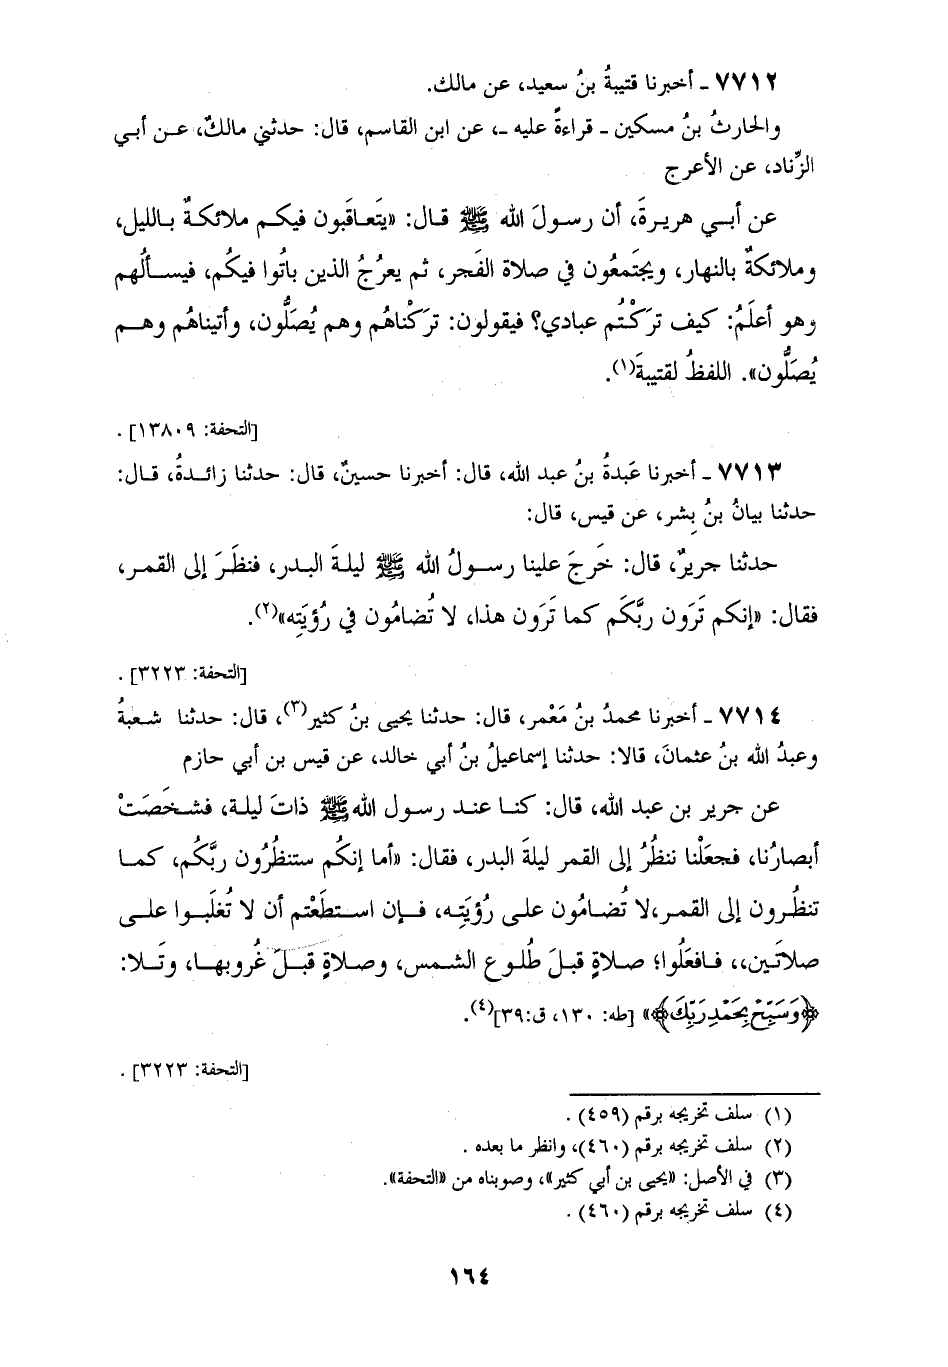 ٧٧١٢ ـ أخبرنا قتيبةُ بنُ سعيد، عن مالك.
والحارثُ بنُ مسكين ـ قراءةً عليه ـ، عن ابن القاسم، قال: حدثني مالكٌ، عن أبي
الزِّناد، عن الأعرج
عن أبي هريرةَ، أن رسولَ الله ﷺ قال: «يتَعاقَبون فيكم ملائكةٌ بالليل،
وملائكةٌ بالنهار، ويجتَمعُون في صلاة الفَجر، ثم يعرُجُ الذين باتُوا فيكُم، فيسألُهم
وهو أعلَمُ: كيف ترَكْتُم عبادي؟ فيقولون: ترَكْناهُم وهم يُصَلُّون، وأتيناهُم وهم
يُصَلُّون». اللفظُ لقتيبةَ(١).
[التحفة: ١٣٨٠٩] .
٧٧١٣ ـ أخبرنا عَبدةُ بنُ عبد الله، قال: أخبرنا حسينٌ، قال: حدثنا زائدةُ، قال:
حدثنا بيانُ بنُ بِشر، عن قيس، قال:
حدثنا جريرٌ، قال: خَرجَ علينا رسولُ الله ﷺ ليلةَ البدر، فنظَرَ إلى القمر،
فقال: «إنكم تَرَون ربَّكَم كما تَرَون هذا، لا تُضامُون في رُؤيَتِه»(٢).
[التحفة: ٣٢٢٣] .
٧٧١٤ ـ أخبرنا محمدُ بنُ مَعْمر، قال: حدثنا يحيى بنُ كثير(٣)، قال: حدثنا شعبةُ
وعبدُ الله بنُ عثمانَ، قالا: حدثنا إسماعيلُ بنُ أبي خالد، عن قيس بن أبي حازم
عن جرير بن عبد الله، قال: كنا عند رسول الله ﷺ ذاتَ ليلة، فشَخَصَتْ
أبصارُنا، فجعَلْنا ننظُرُ إلى القمر ليلةَ البدر، فقال: «أما إنكُم ستنظُرُون ربَّكُم، كما
تنظُرون إلى القمر،لا تُضامُون على رُؤيَتِه، فإن استطَعْتم أن لا تُغلَبوا على
صلاتَين،، فافعَلُوا؛ صلاةٍ قبلَ طُلوع الشمس، وصلاةٍ قبلَ غُروبها، وتَلا:
﴿وَسَبِّحْ بِحَمْدِ رَبِّكَ﴾» [طه: ١٣٠، ق:٣٩](٤).
[التحفة: ٣٢٢٣] .
(١) سلف تخريجه برقم (٤٥٩) .
(٢) سلف تخريجه برقم (٤٦٠)، وانظر ما بعده .
(٣) في الأصل: «يحيى بن أبي كثير»، وصوبناه من «التحفة».
(٤) سلف تخريجه برقم (٤٦٠) .
١٦٤